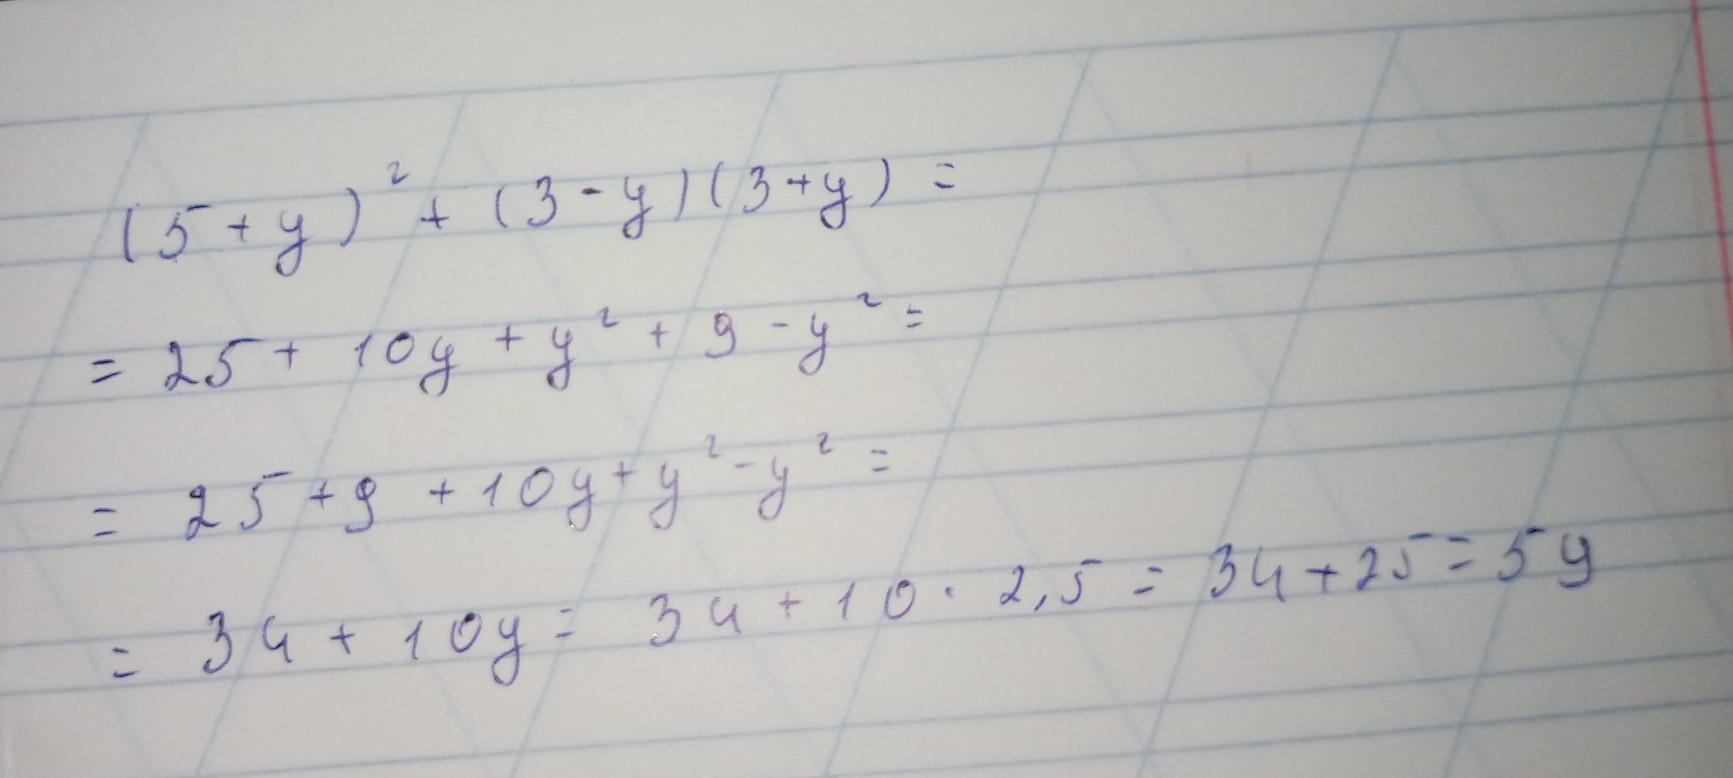 (5+y)² + (3-y)(3+y) =
= 25 + 10y + y² + 9 - y² =
= 25 + 9 + 10y + y² - y² =
= 34 + 10y = 34 + 10 · 2,5 = 34 + 25 = 59